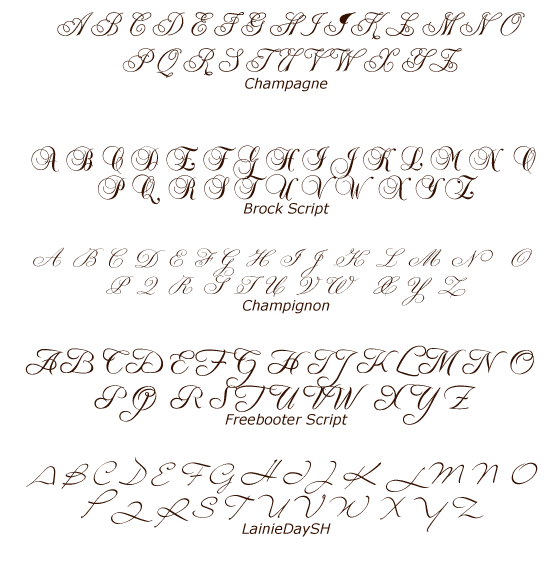 A B C D E F G H I J K L M N O
P Q R S T U V W X Y Z
Champagne
A B C D E F G H I J K L M N O
P Q R S T U V W X Y Z
Brock Script
A B C D E F G H I J K L M N O
P Q R S T U V W X Y Z
Champignon
A B C D E F G H I J K L M N O
P Q R S T U V W X Y Z
Freebooter Script
A B C D E F G H I J K L M N O
P Q R S T U V W X Y Z
LainieDaySH